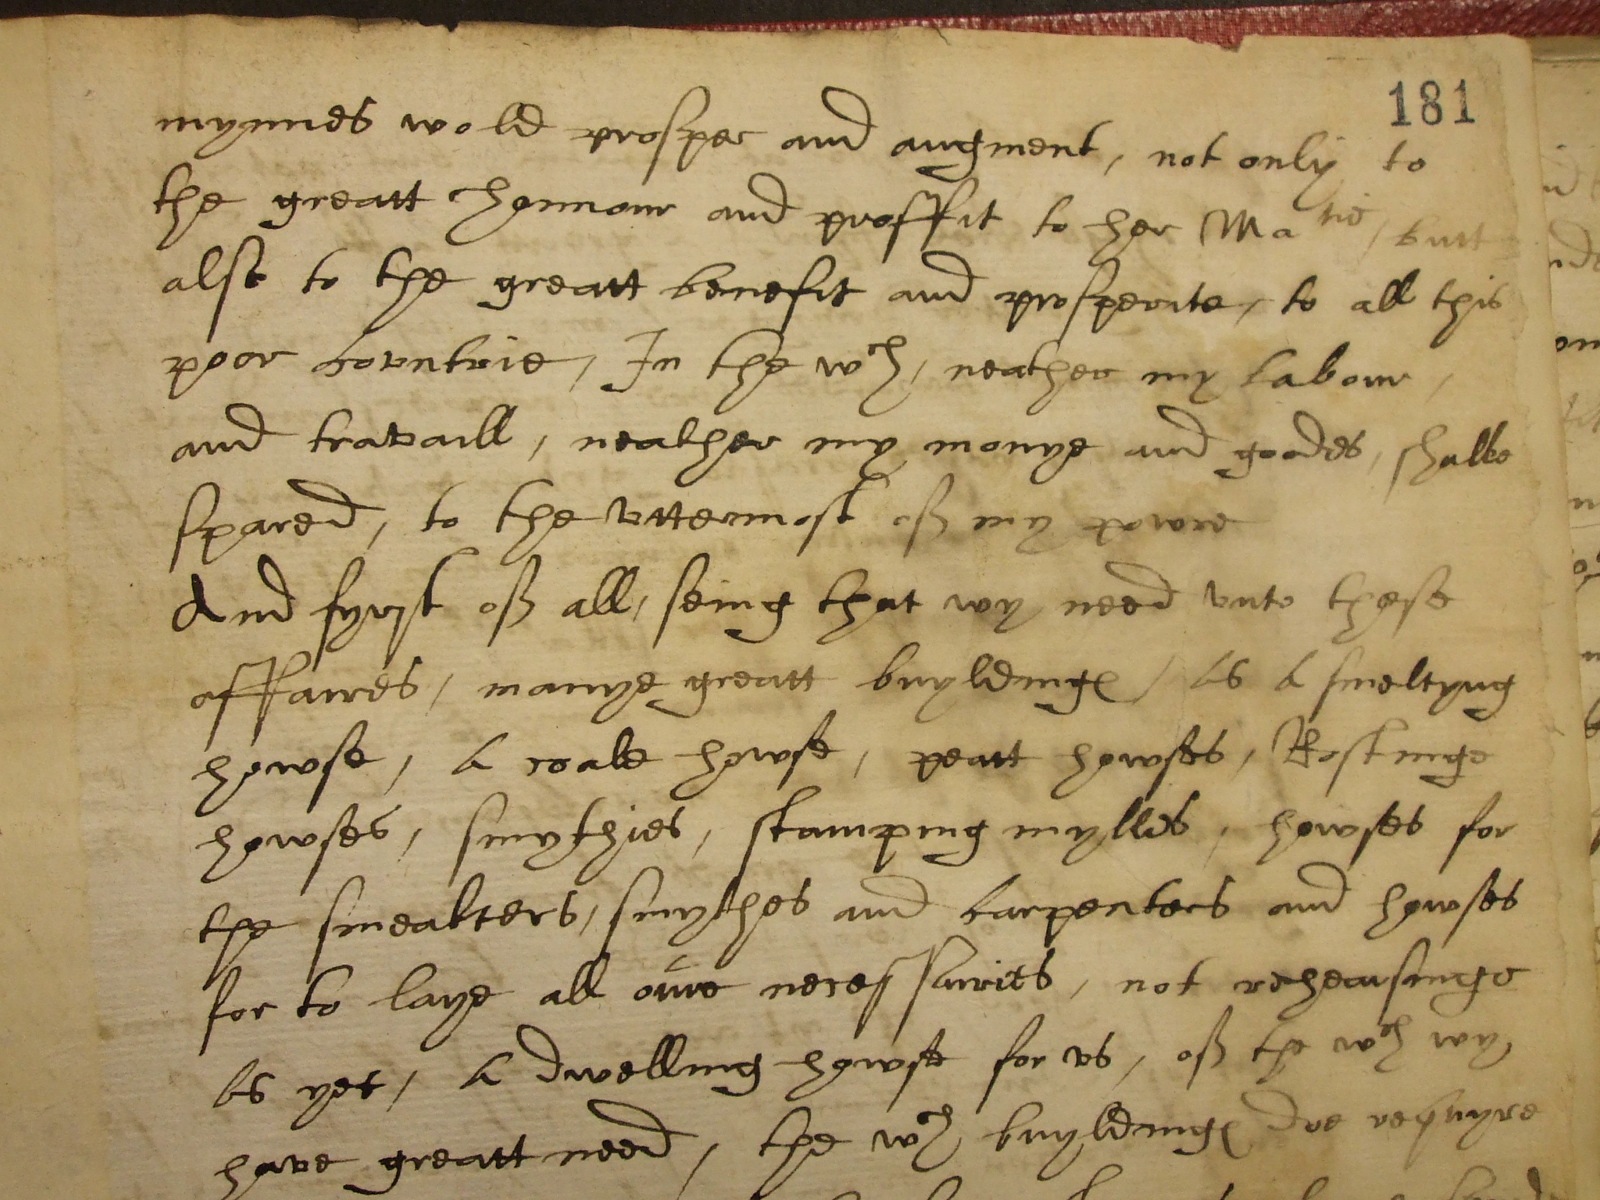 181
mynnes wold prosper and augment, not only to
the greatt honnour and proffit to her Matie, butt
also to the greatt benefit and prosperite, to all this
poor covntrie, In the wch, neather my labour,
and travaill, neather my monye and goodes, shalbe
spared, to the vttermost off my powre
And fyrst off all, seing that wy need vnto these
affaires, manye greatt buyldinges, as a smeltyng
howse, a coale howse, peatt howses, Rostinge
howses, smythies, stamping mylles, howses for
the smealters, smythes and carpenters and howses
for to laye all oure necessaries, not rehearsinge
as yet, a dwelling howse for vs, off the wch wy
have greatt need, the wch buyldinges doe requyre